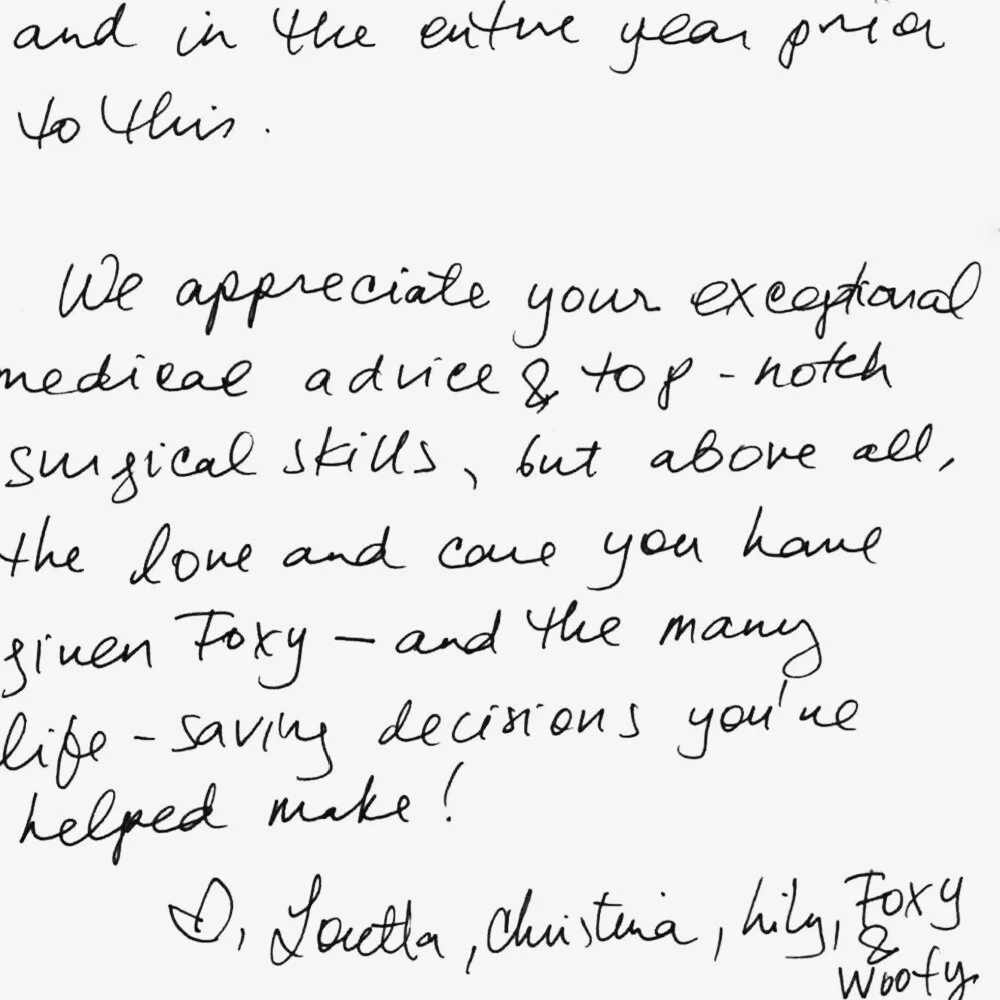 and in the entire year prior
to this.
We appreciate your exceptional
medical advice & top-notch
surgical skills, but above all,
the love and care you have
given Foxy – and the many
life-saving decisions you've
helped make!
♡, Loretta, Christina, Lily, Foxy
&
Woofy